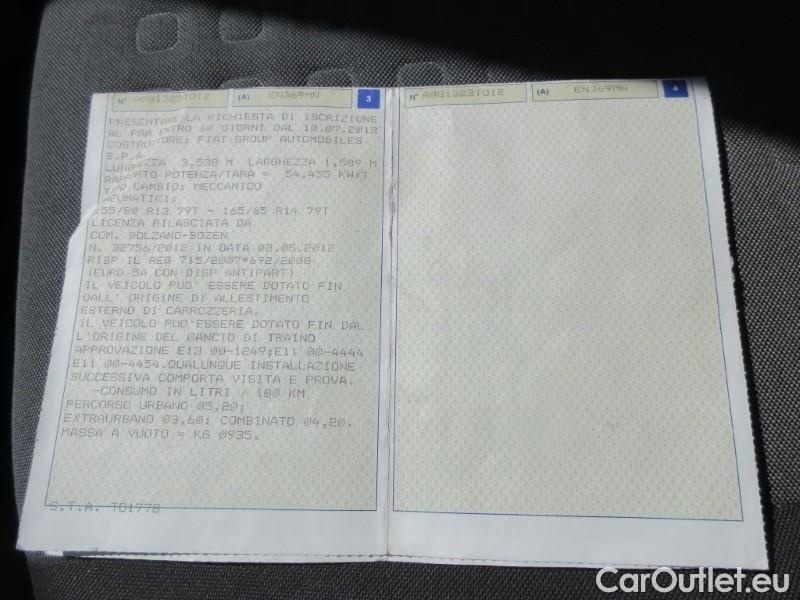 N° A081323TO12 (A) EN369MN 3
PRESENTARE LA RICHIESTA DI ISCRIZIONE
AL PRA ENTRO 60 GIORNI DAL 10.07.2012
COSTRUTTORE: FIAT GROUP AUTOMOBILES
S.P.A.
LUNGHEZZA 3,538 M LARGHEZZA 1,589 M
RAPPORTO POTENZA/TARA = 54,455 KW/T
TIPO CAMBIO: MECCANICO
PNEUMATICI:
155/80 R13 79T - 165/65 R14 79T
LICENZA RILASCIATA DA
COM. BOLZANO-BOZEN
N. 32756/2012 IN DATA 02.05.2012
RISP IL REG 715/2007*692/2008
(EURO 5A CON DISP ANTIPART)
IL VEICOLO PUO' ESSERE DOTATO FIN
DALL' ORIGINE DI ALLESTIMENTO
ESTERNO DI CARROZZERIA.
IL VEICOLO PUO'ESSERE DOTATO FIN DAL
L'ORIGINE DEL GANCIO DI TRAINO
APPROVAZIONE E13 00-1249;E11 00-4444
E11 00-4454.QUALUNQUE INSTALLAZIONE
SUCCESSIVA COMPORTA VISITA E PROVA.
-CONSUMO IN LITRI / 100 KM
PERCORSO URBANO 05,20;
EXTRAURBANO 03,60; COMBINATO 04,20.
MASSA A VUOTO = KG 0935.
S.T.A. TO1778
N° A081323TO12 (A) EN369MN 4
CarOutlet.eu